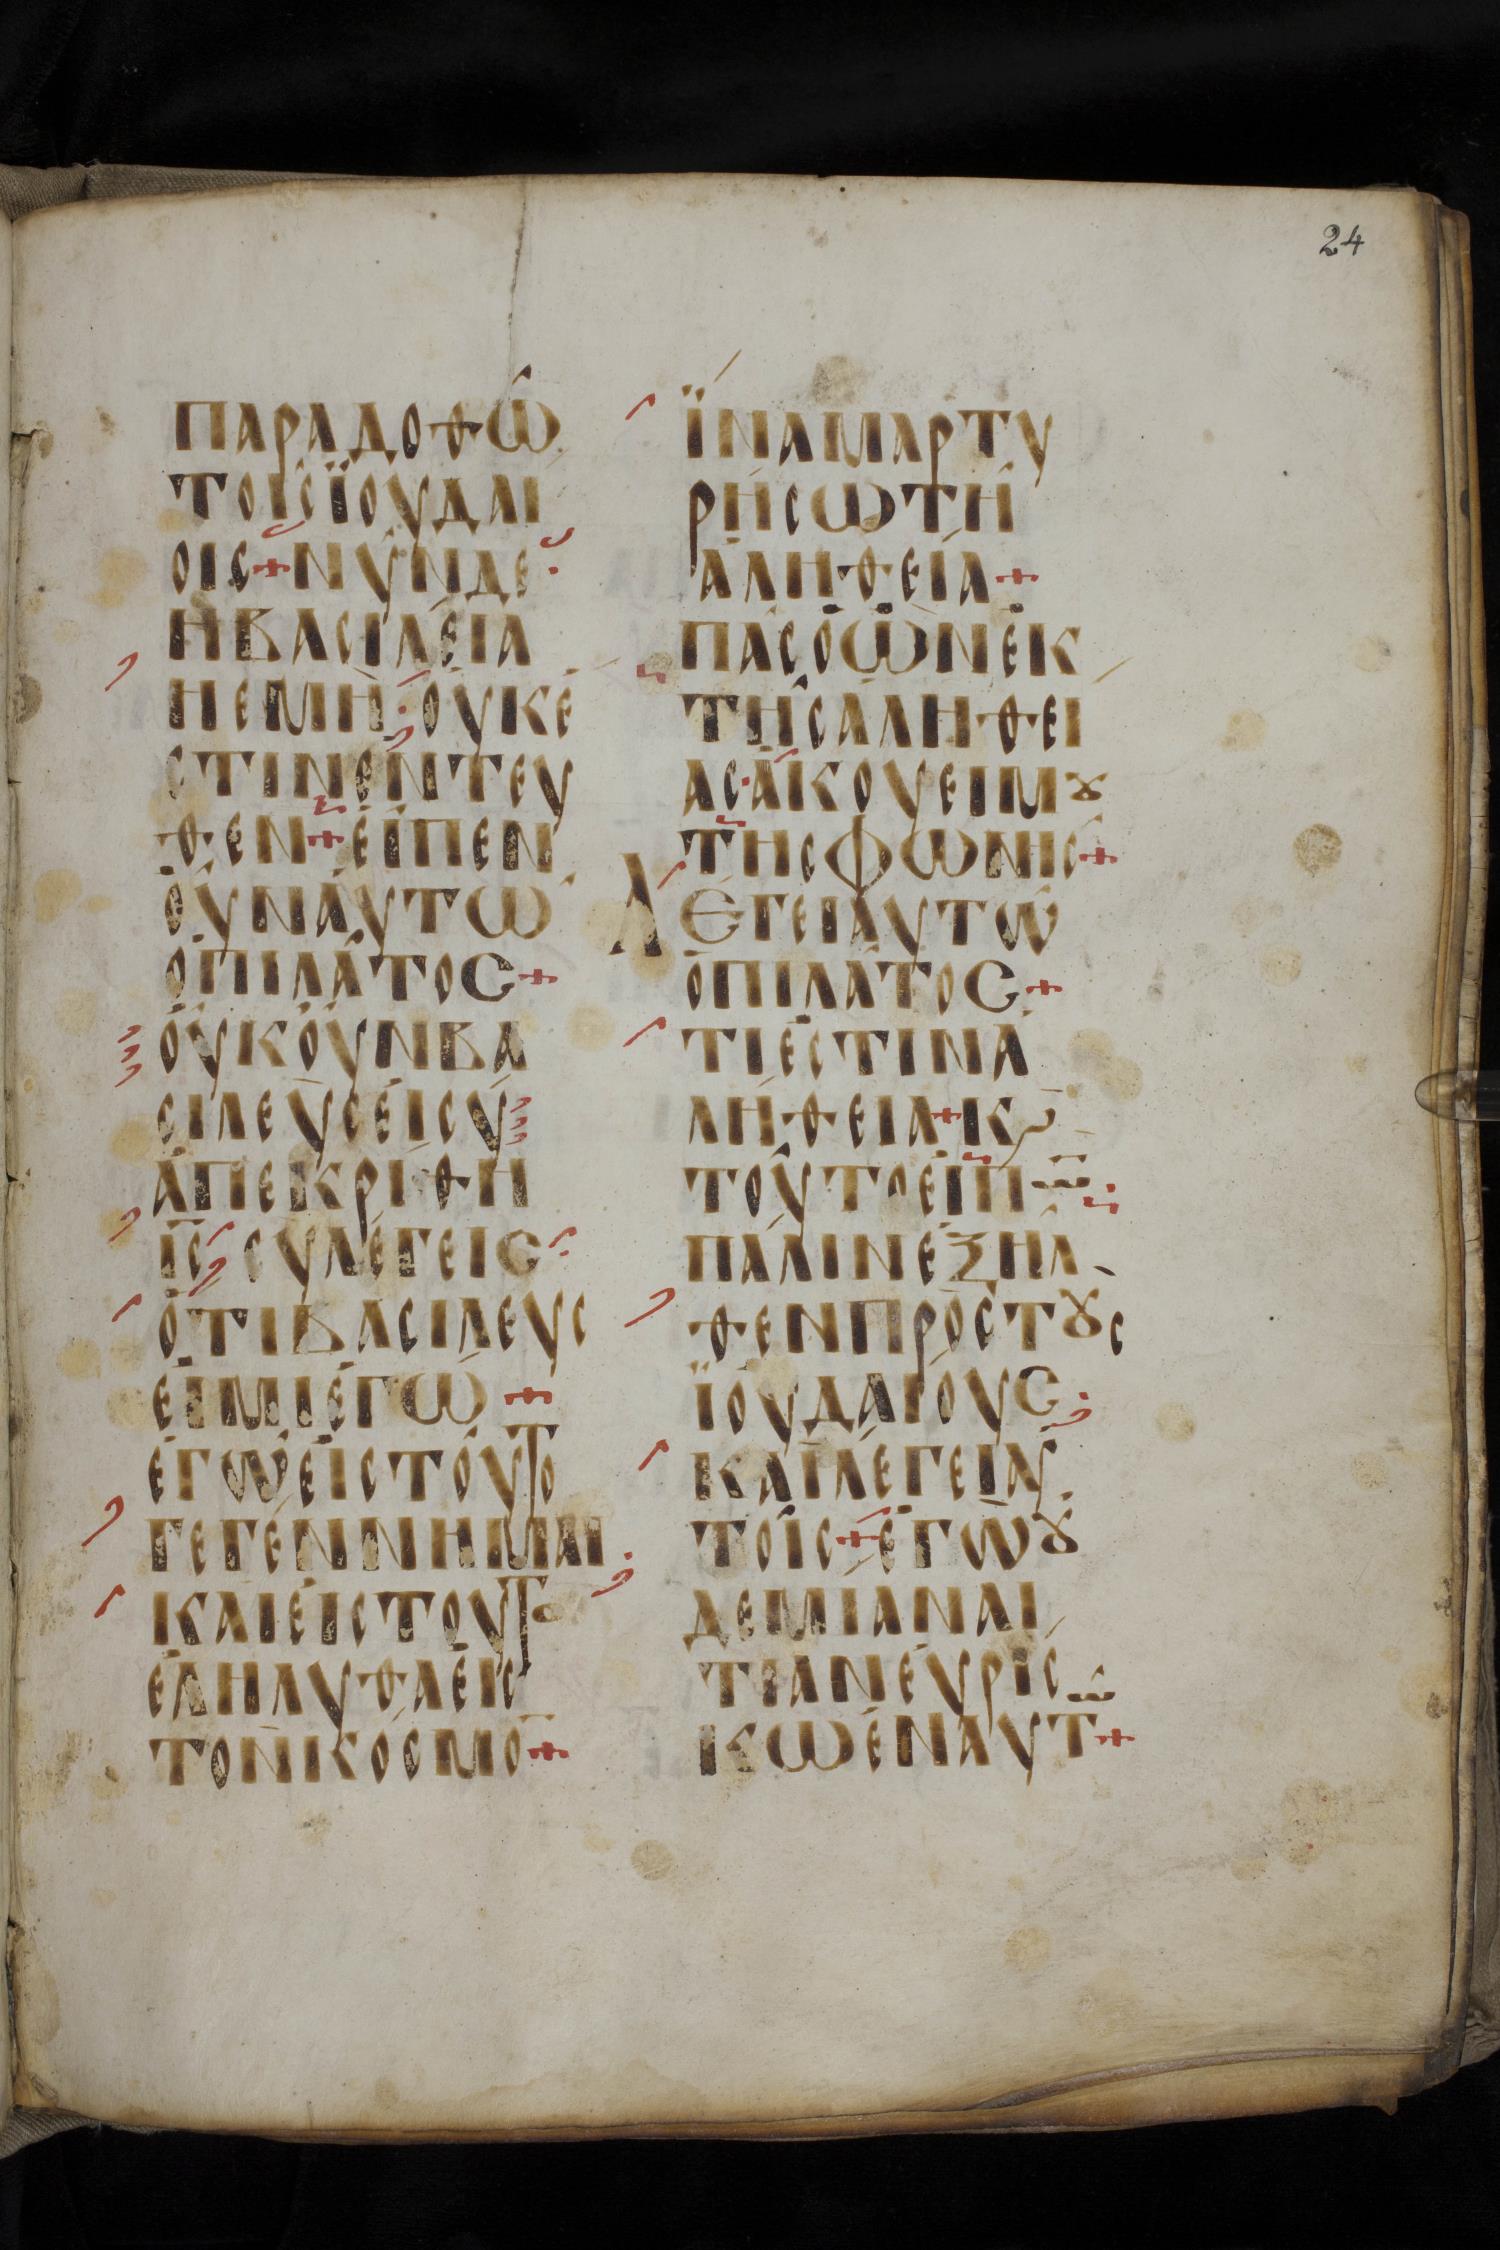 24
ΠΑΡΑΔΟΘΩ͂
ΤΟΙ͂ΣΪΟΥΔΑΙ
ΟΙΣ+ΝΥ͂ΝΔΕ
ἩΒΑΣΙΛΕΊΑ
ἩΕΜῊ·ΟΥ̓ΚἘ
ΣΤΙΝἘΝΤΕΥ
ΘΕΝ+ΕἾΠΕΝ
ΟΥ̓͂ΝΑΥ̓ΤΩ
ὉΠΙΛΑ͂ΤΟΣ+
ΟΥ̓ΚΟΥ͂ΝΒΑ
ΣΙΛΕῪΣΕἾΣΎ
ἈΠΕΚΡΊΘΗ
ΙΣ̅ ΣΥΛΈΓΕΙΣ·
ὍΤΙΒΑΣΙΛΕΥΣ
ΕἸΜΙἘΓΏ+
ἘΓῺΕἸΣΤΟΥ͂ΤΟ
ΓΕΓΈΝΝΗΜΑΙ·
ΚΑΙΕἸΣΤΟΥΤΟ
ἘΛΗΛΥΘΑΕἸΣ
ΤΟΝΚΌΣΜΟ̅+
ΪΝΑΜΑΡΤΥ
ΡΉΣΩΤΗ͂
ἈΛΗΘΕΊΑ+
ΠΑ͂ΣὉὬΝἘΚ
ΤΗ͂ΣΑΛΗΘΕΙ
ΑΣ·ἈΚΟΥΕΙΜȢ
ΤΗΣΦΩΝΗΣ+
ΛΕΓΕΙΑΥ̓ΤΩ͂
ὉΠΙΛΑ͂ΤΟΣ+
ΤΙἘΣΤΙΝἈ
ΛΉΘΕΙΑ+Κϗ
ΤΟΥ͂ΤΟΕἸΠῺ̅·
ΠΆΛΙΝἘΞΗ͂Λ
ΘΕΝΠΡῸΣΤȢΣ
ΪΟΥΔΑΊΟΥΣ·
ΚΑῚΛΈΓΕΙΑΥ̓
ΤΟΙ͂Σ+ἘΓῺȢ
ΔΕΜΊΑΝΑΙ
ΤΊΑΝΕὙΡΊΣ
ΚΩἘΝΑΥΤΩ͂+